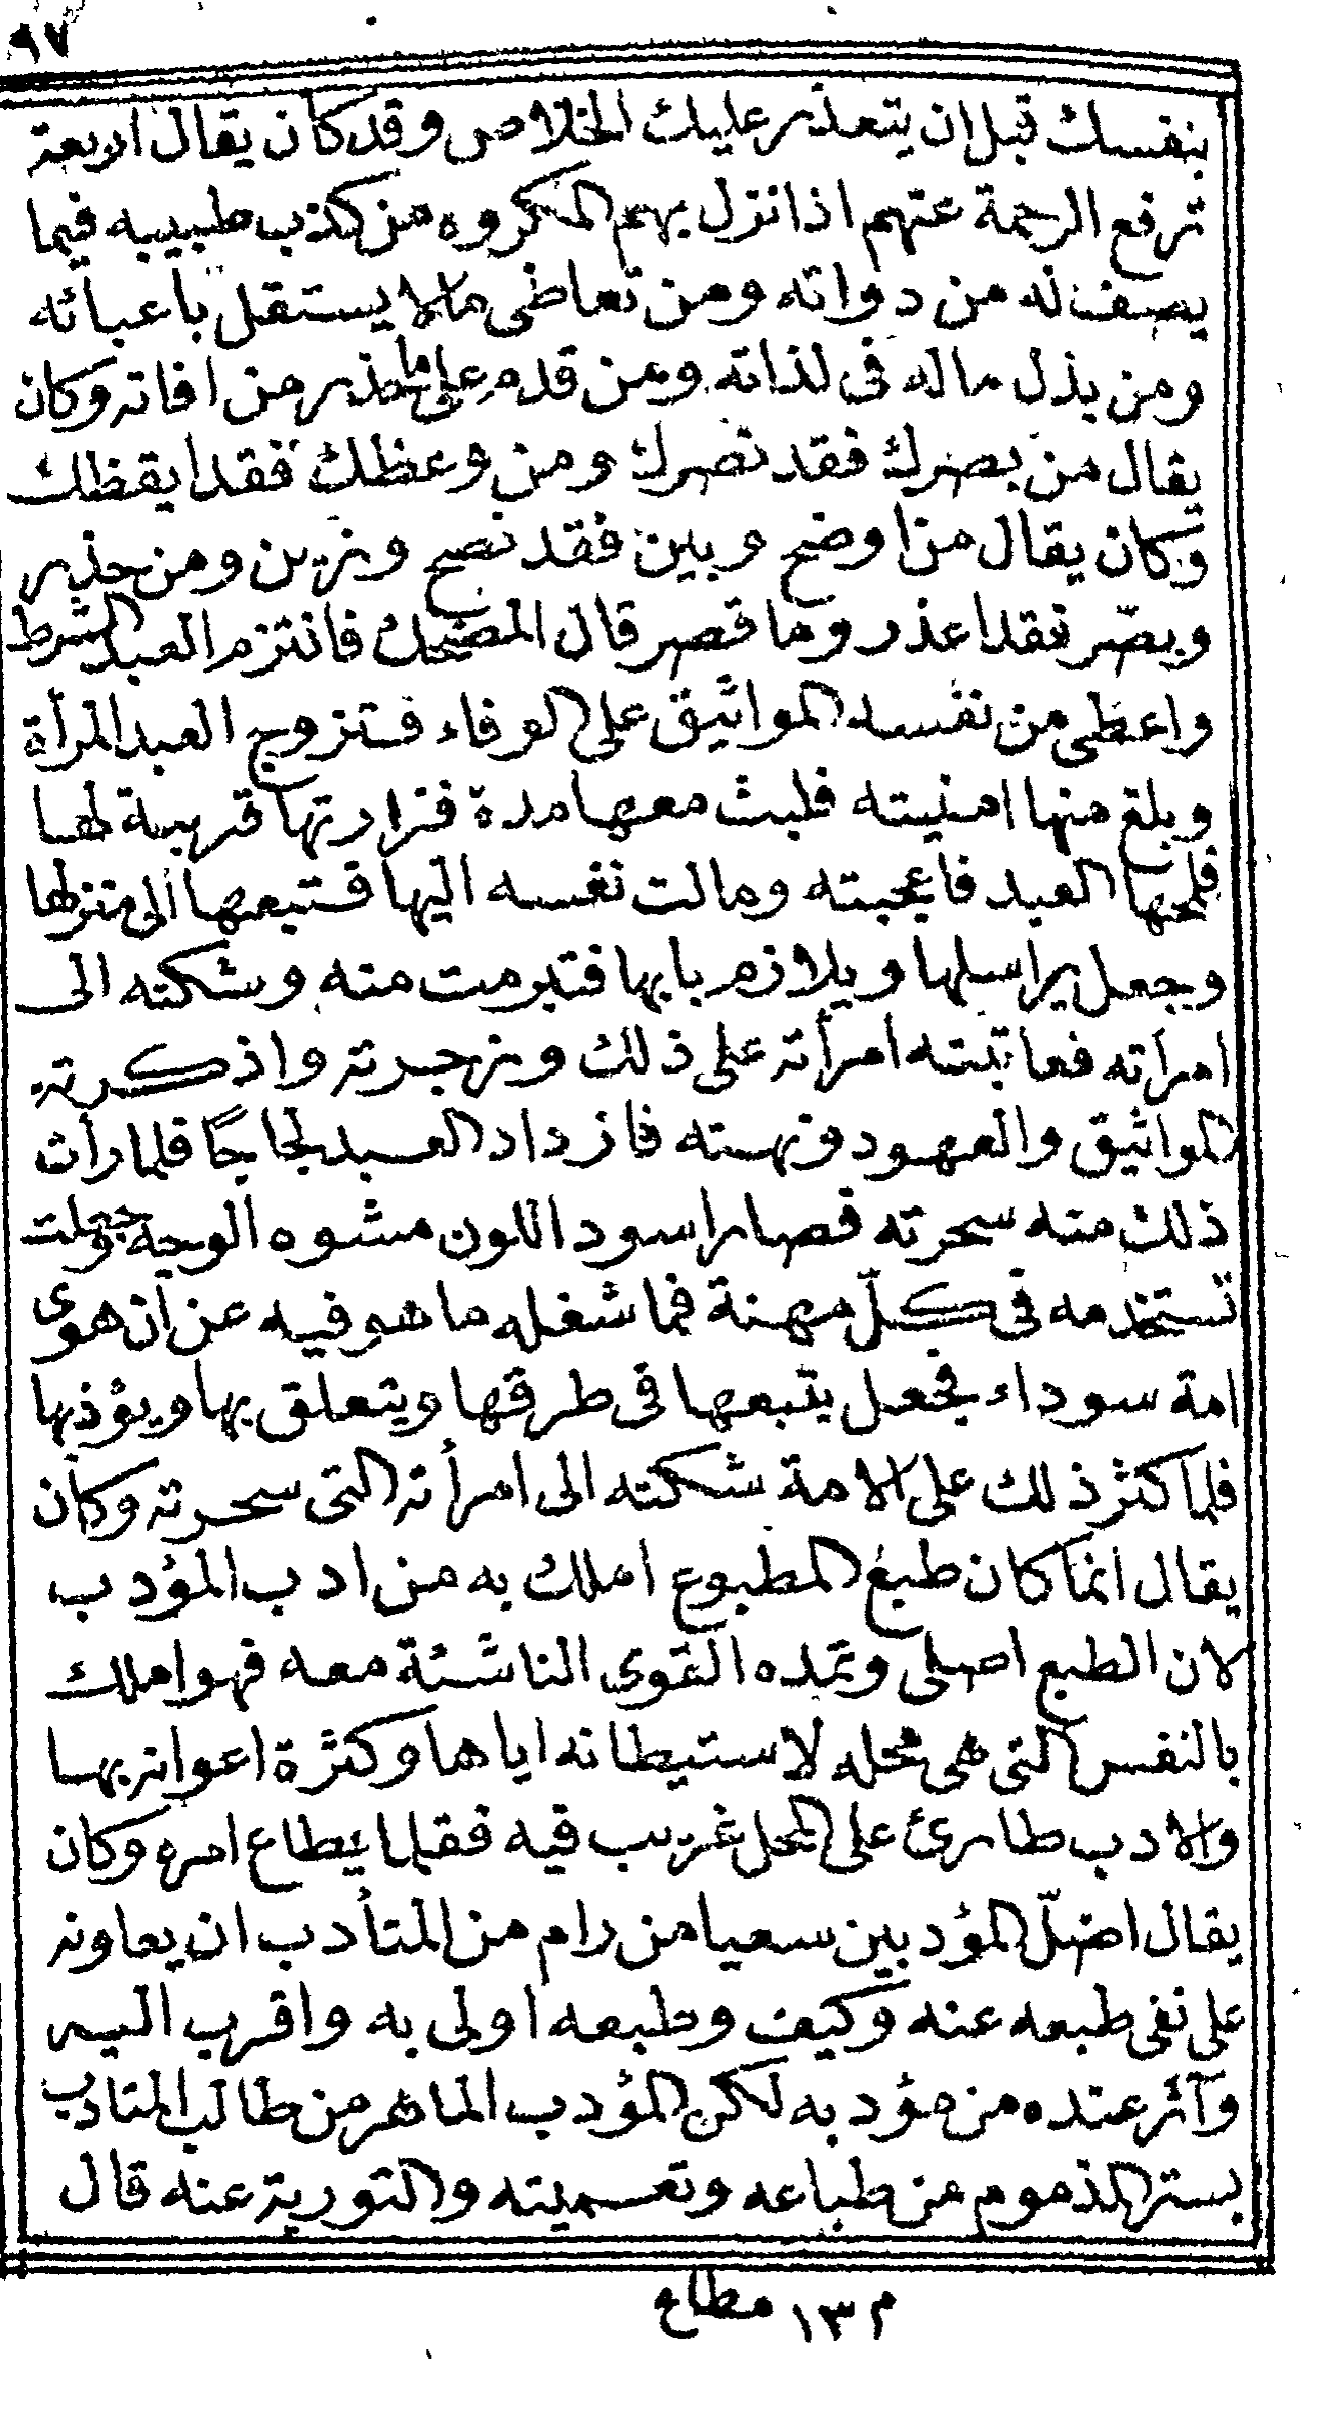 ٩٧
بنفسك قبل ان يتعذر عليك الخلاص وقد كان يقال اربعة
ترفع الرحمة عنهم اذا نزل بهم المكروه من كذب طبيبه فيما
يصف له من دوائه ومن تعاطى مالا يستقل باعبائه
ومن بذل ماله فى لذاته ومن قدم على ما حذر من افاته وكان
يقال من بصرك فقد نصرك ومن وعظك فقد ايقظك
وكان يقال من اوضح وبين فقد نصح وزين ومن حذر
وبصّر فقد اعذر وما قصر قال المضحك فالتزم العبد الشرط
واعطى من نفسه المواثيق على الوفاء فتزوج العبد المرأة
وبلغ منها امنيته فلبث معها مدة فزارتها قريبة لها
فلمحها العبد فاعجبته ومالت نفسه اليها فتبعها الى منزلها
وجعل يراسلها ويلازم بابها فتبرمت منه وشكته الى
امرأته فعاتبته امرأته على ذلك وزجرته واذكرته
المواثيق والعهود ونهته فازداد العبد لجاجًا فلما رأت
ذلك منه سحرته فصار اسود اللون مشوه الوجه وجعلت
تستخدمه فى كلّ مهنة فما شغله ما هو فيه عن ان هوى
امة سوداء فجعل يتبعها فى طرقها ويتعلق بها ويؤذيها
فلما كثر ذلك على الامة شكته الى امرأته التى سحرته وكان
يقال انما كان طبع المطبوع املك به من ادب المؤدب
لان الطبع اصلى وتمده القوى الناشئة معه فهو املك
بالنفس التى هى محله لاستيطانه اياها وكثرة اعوانه بها
والادب طارئ على المحل غريب فيه فقلما يطاع امره وكان
يقال اضلّ المؤدبين سعيا من رام من المتأدب ان يعاونه
على نفى طبعه عنه وكيف وطبعه اولى به واقرب اليه
وآثر عنده من مؤدبه لكن المؤدب الماهر من طالب المتادب
بستر المذموم من طباعه وتعميته والتورية عنه قال
م ١٣ مطاع